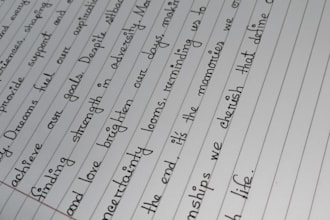 every
shaping
provide support and
y. Dreams fuel our aspirations
achieve our goals. Despite setbacks
finding strength in adversity. Mo
and love brighten our days, makin
uncertainty looms, reminding us to
the end, it's the memories we
nships we cherish that define o
h life.